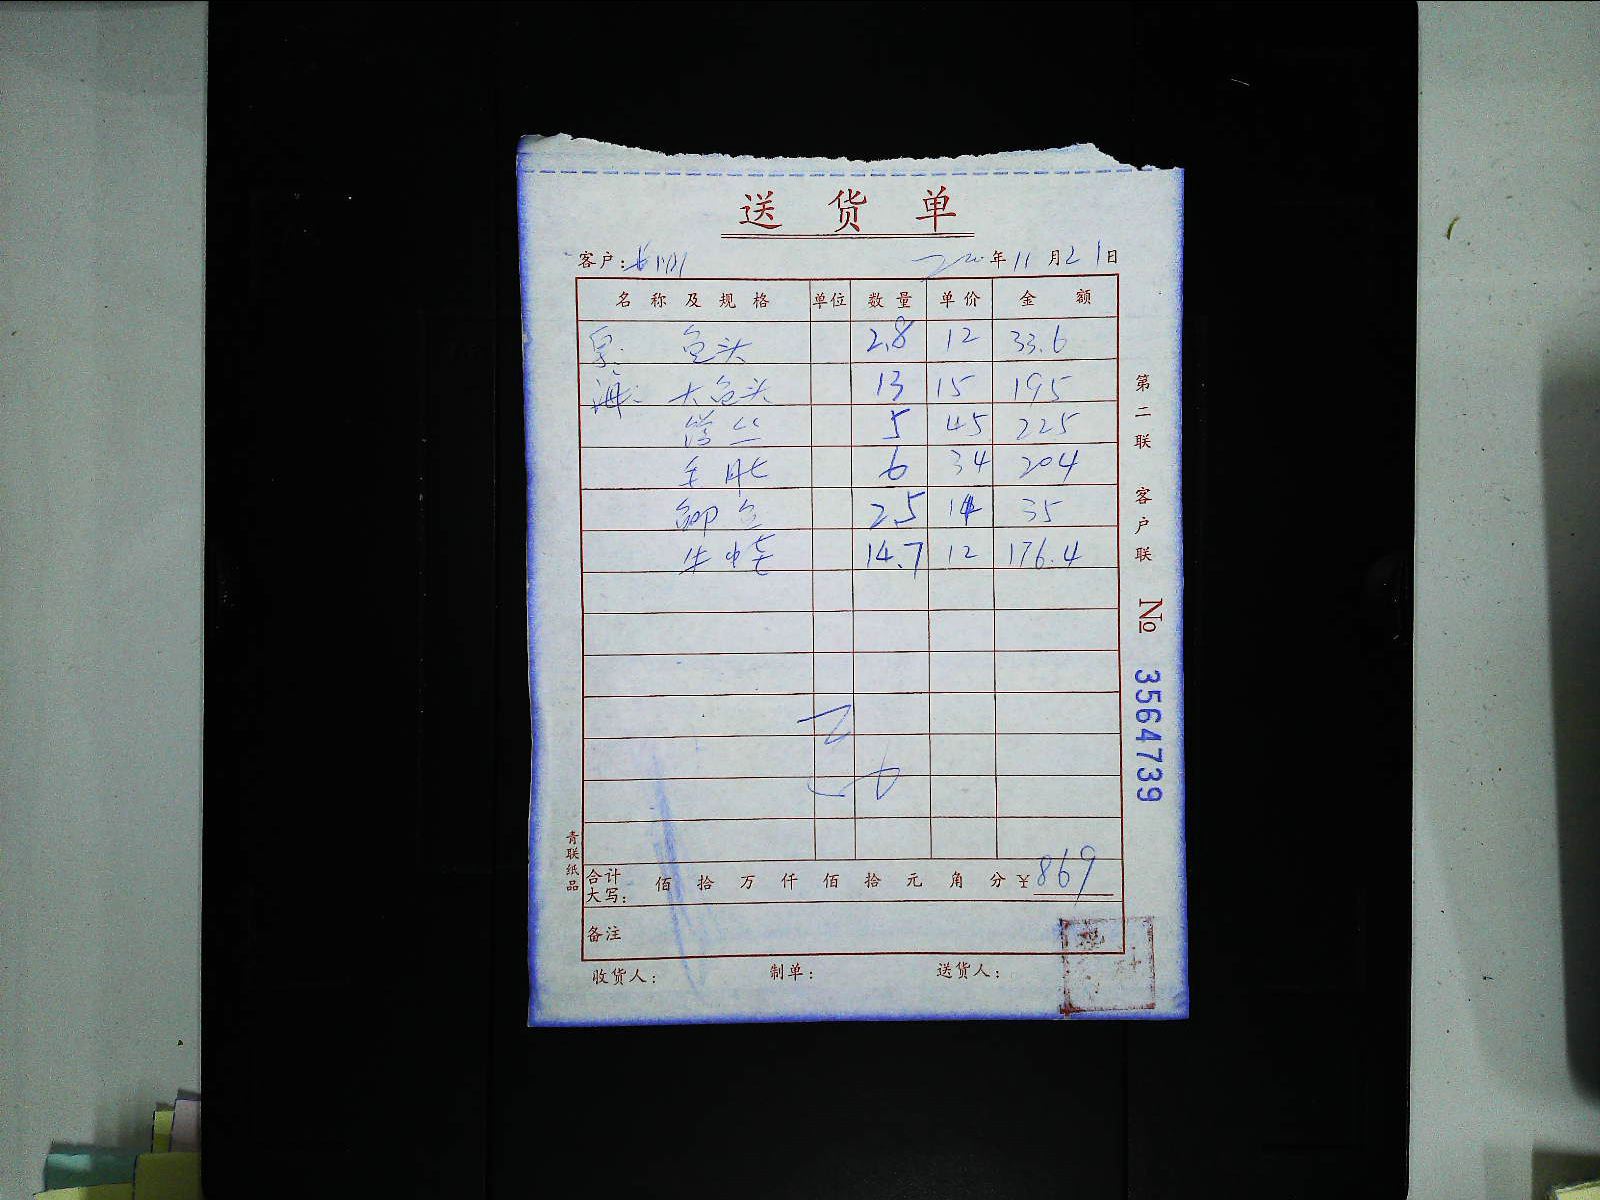 送 货 单
客户: 2020年11月21日
名称及规格 单位 数量 单价 金额
鱼头 2.8 12 33.6
海: 大鱼头 13 15 195
5 45 225
6 34 204
鲫鱼 2.5 14 35
14.7 12 176.4
合计大写: 佰 拾 万 仟 佰 拾 元 角 分 ¥869
备注
收货人: 制单: 送货人:
第二联 客户联
No 3564739
青联纸品